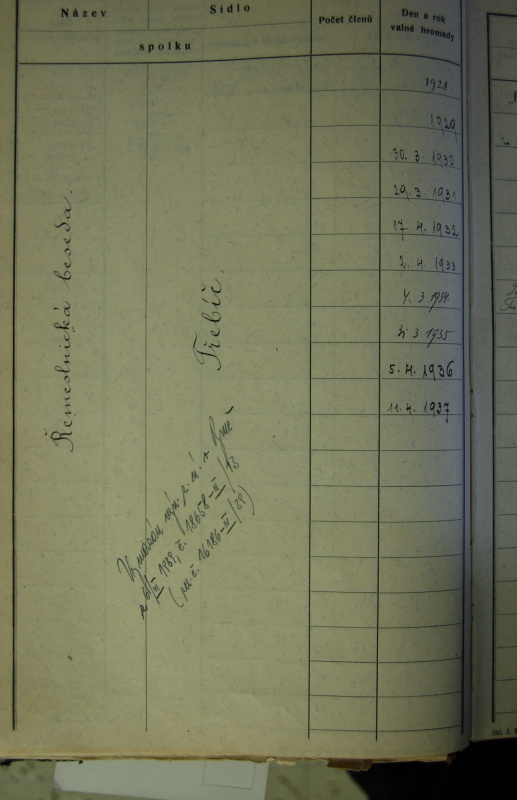 Název
Sídlo
spolku
Počet členů
Den a rok
valné hromady
Řemeslnická beseda.
Třebíč.
1928
1929
30. 3. 1930
29. 3. 1931
17. 4. 1932
2. 4. 1933
4. 3 1934
31. 3 1935
5. 4. 1936
11. 4. 1937
Vymazán výn. z. ú. v Brně
1939, č. 18658-II/18
č. 16186-II/39)